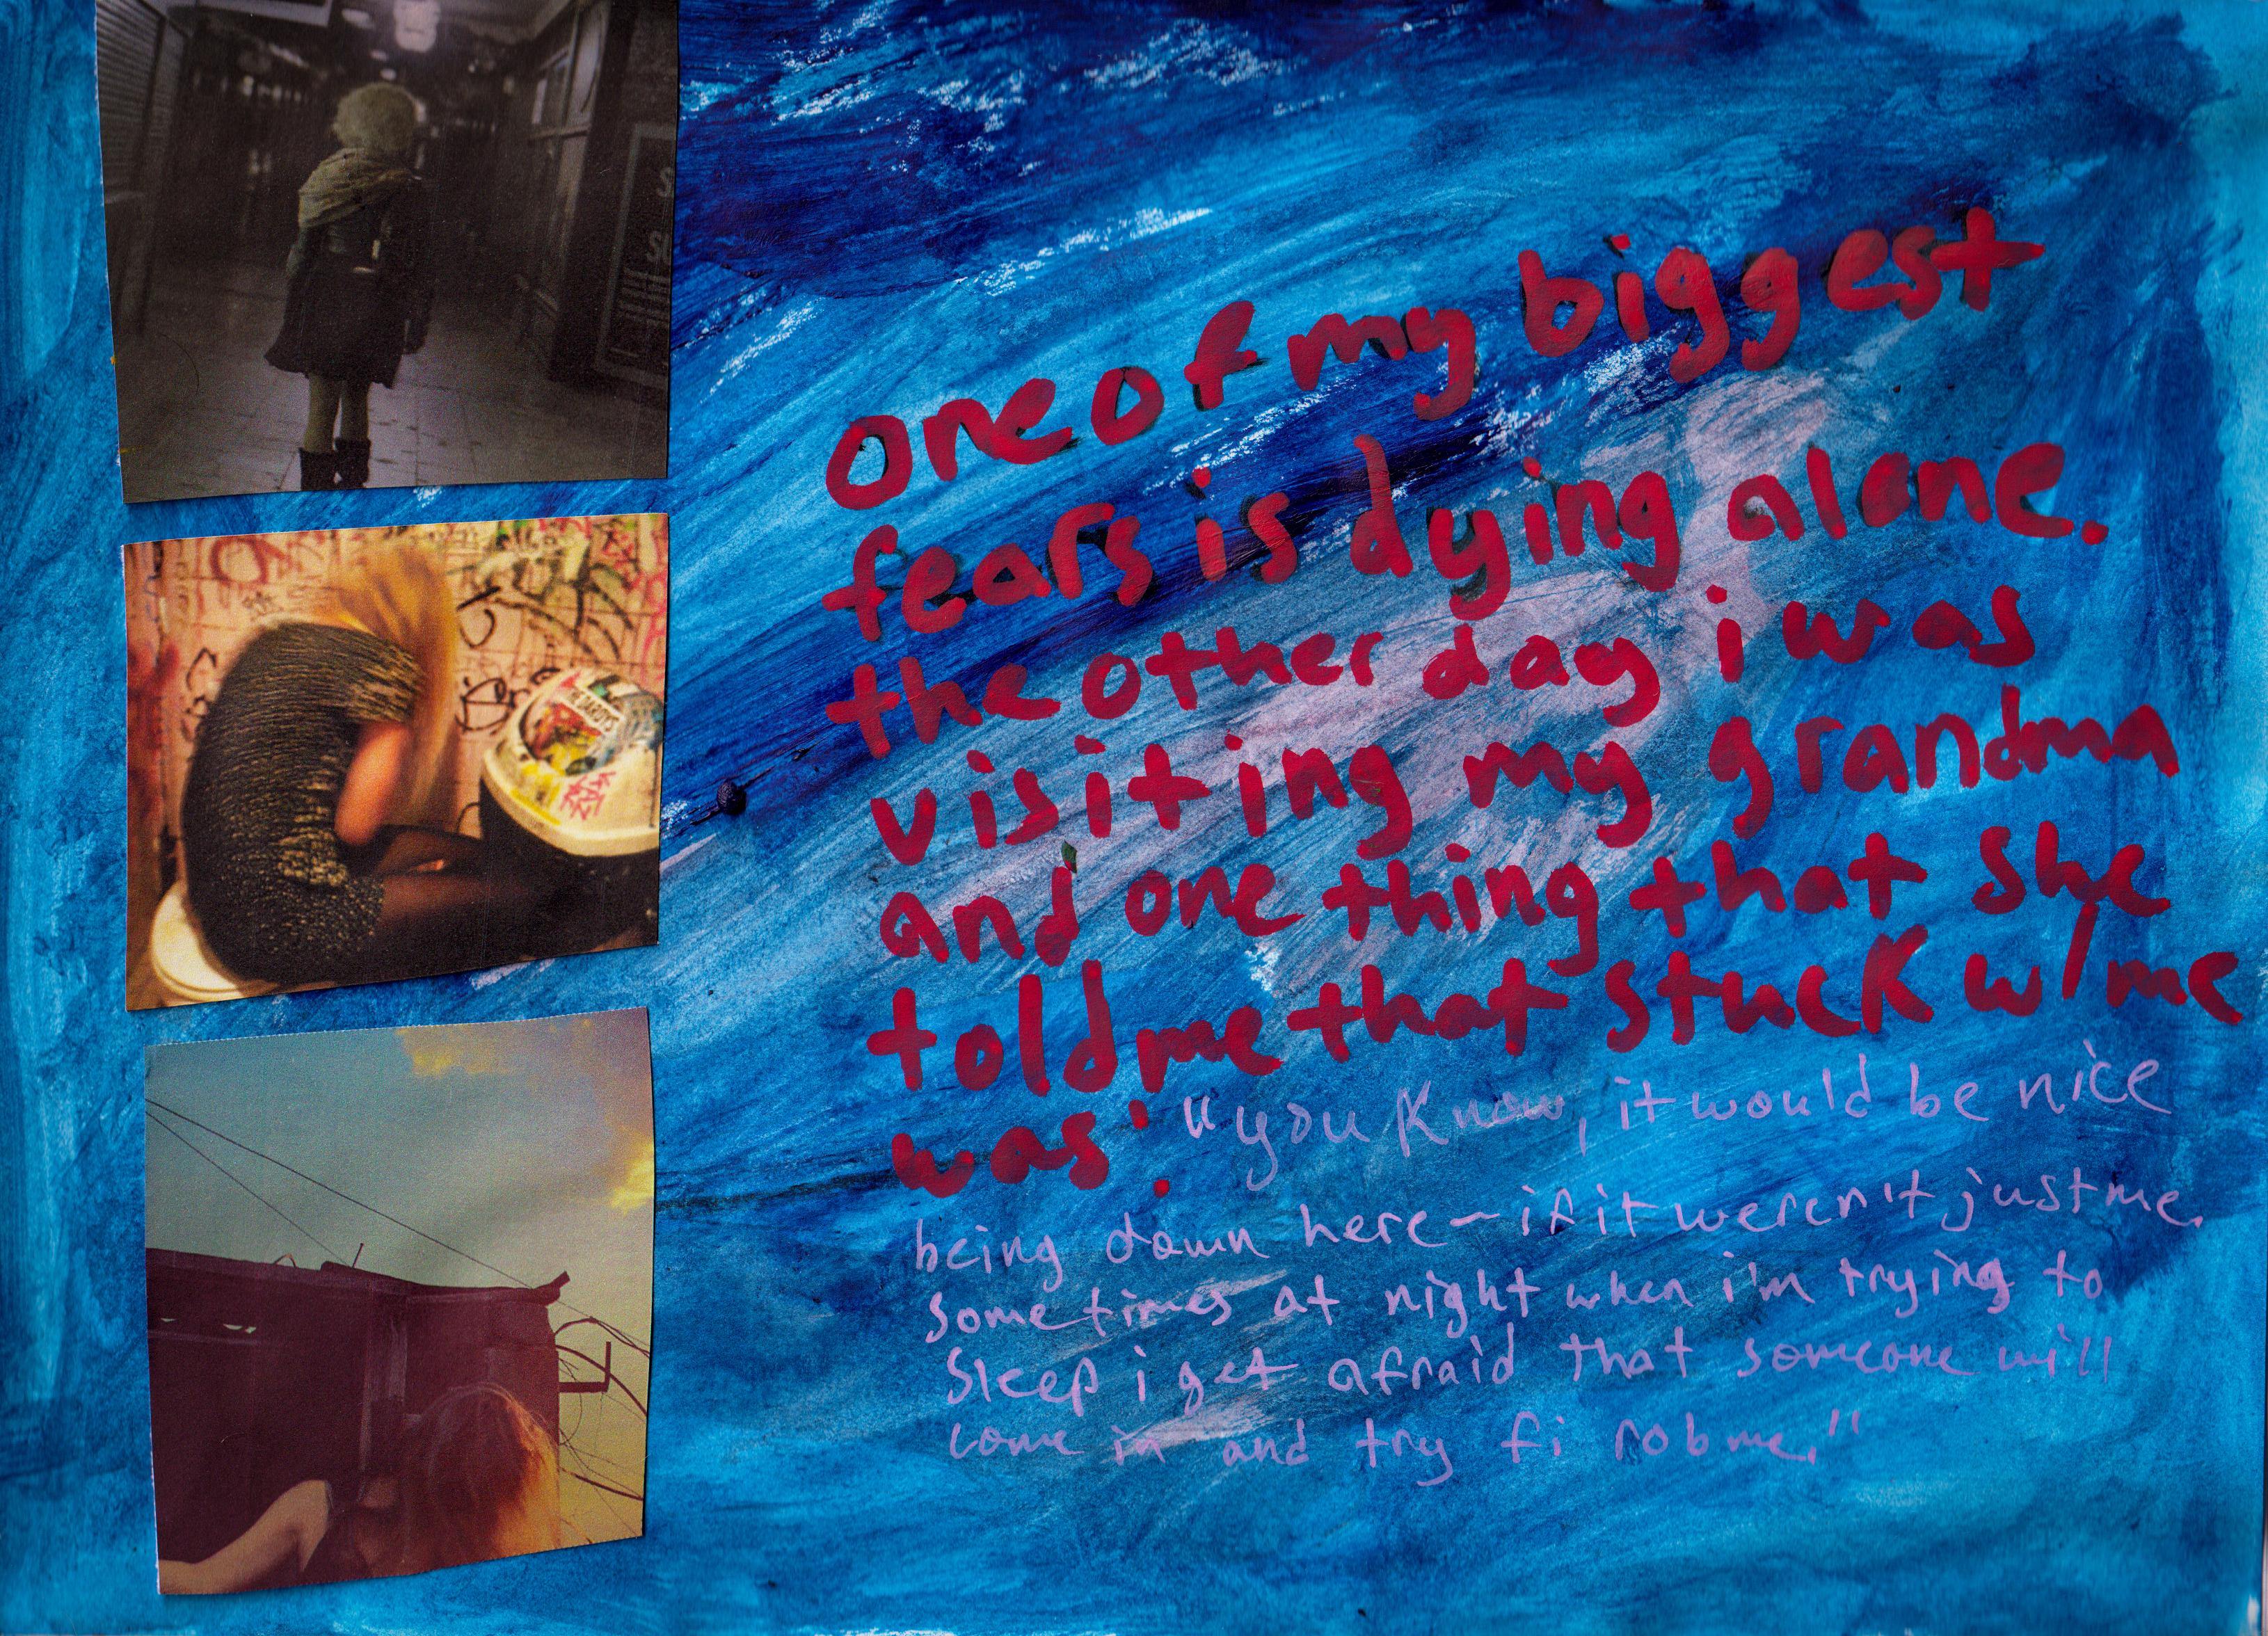 one of my biggest
fears is dying alone.
the other day i was
visiting my grandma
and one thing that she
told me that stuck w/me
was: "you know, it would be nice
being down here - if it weren't just me.
sometimes at night when i'm trying to
sleep i get afraid that someone will
come in and try fi rob me."